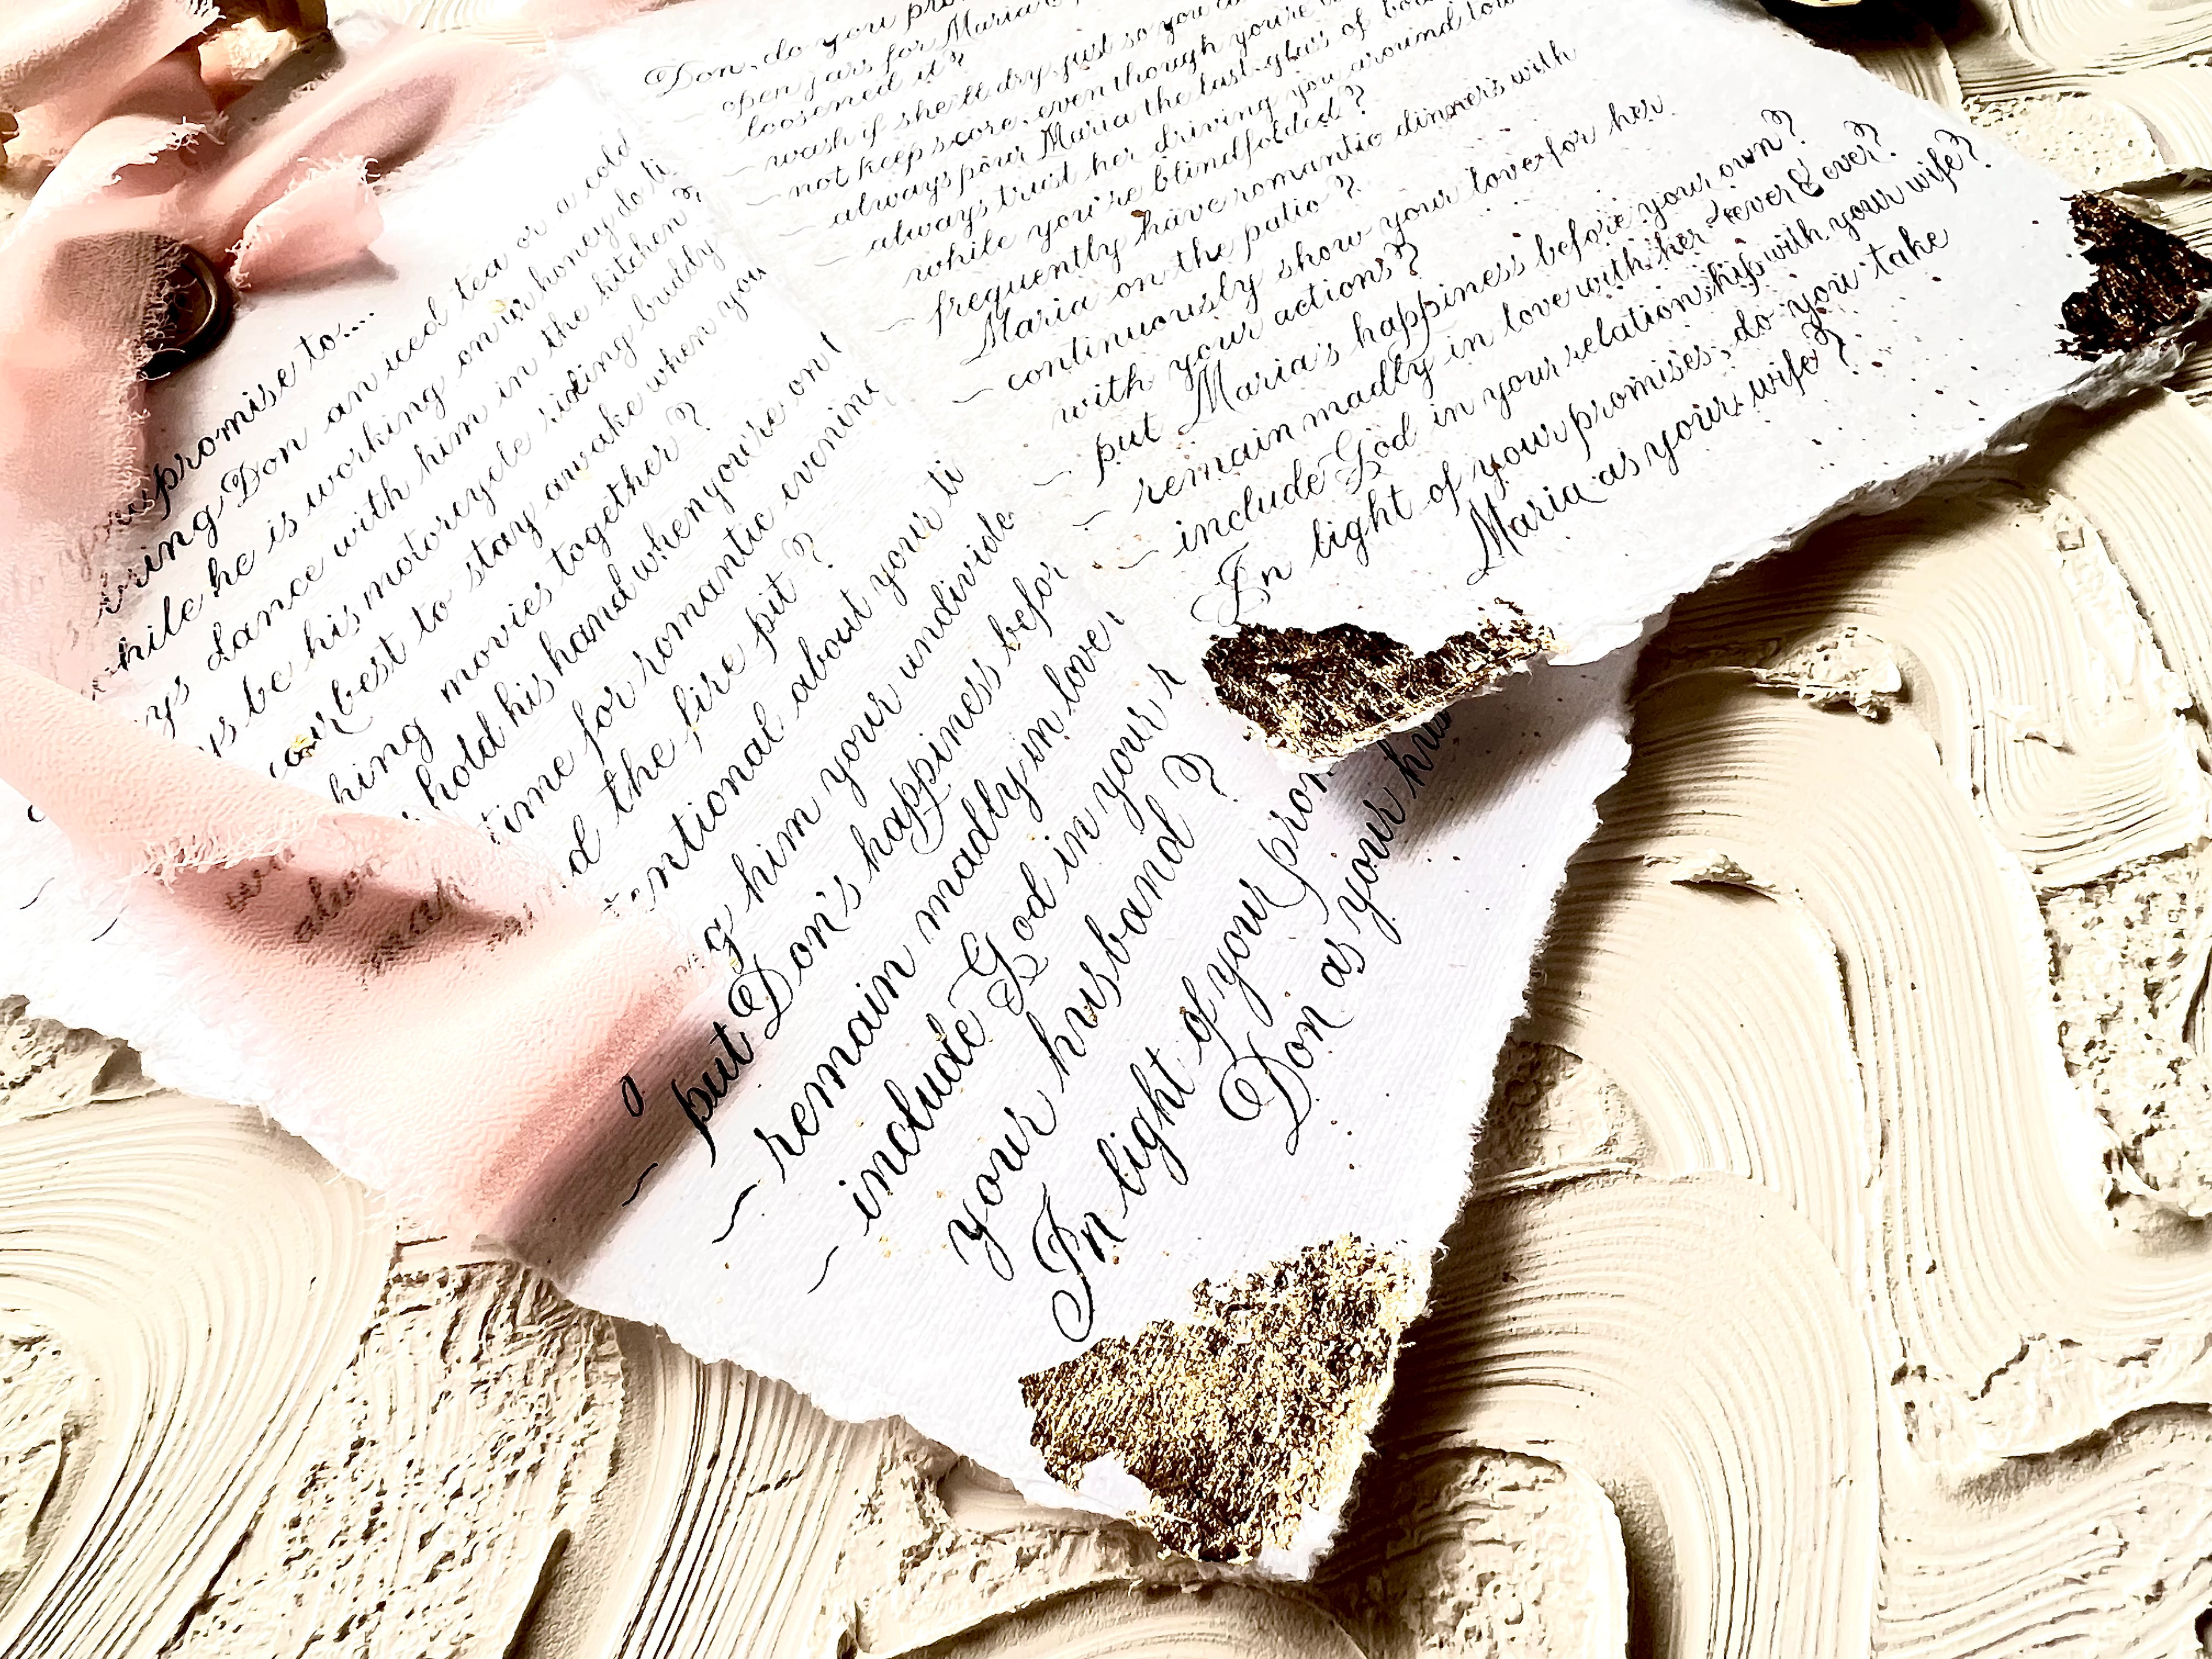 Don, do you pro
open jars for Maria
loosened it?
~ wash if she'll dry, just so you
~ not keep score, even though you're
~ always pour Maria the last glass of
~ always trust her driving you around
while you're blindfolded?
~ frequently have romantic dinners with
Maria on the patio?
~ continuously show your love for her
with your actions?
~ put Maria's happiness before your own?
~ remain madly in love with her 4ever & ever?
~ include God in your relationship with your wife?
In light of your promises, do you take
Maria as your wife?
you promise to....
ring Don an iced tea or a cold
hile he is working on ur honey do li
ys dance with him in the kitchen?
ys be his motorcycle riding buddy
our best to stay awake when you
hing movies together?
hold his hand when you're on t
time for romantic evening
d the fire pit?
entional about your ti
g him your undivide
~ put Don's happiness befor
~ remain madly in love
~ include God in your r
your husband?
In light of your prom
Don as your hus